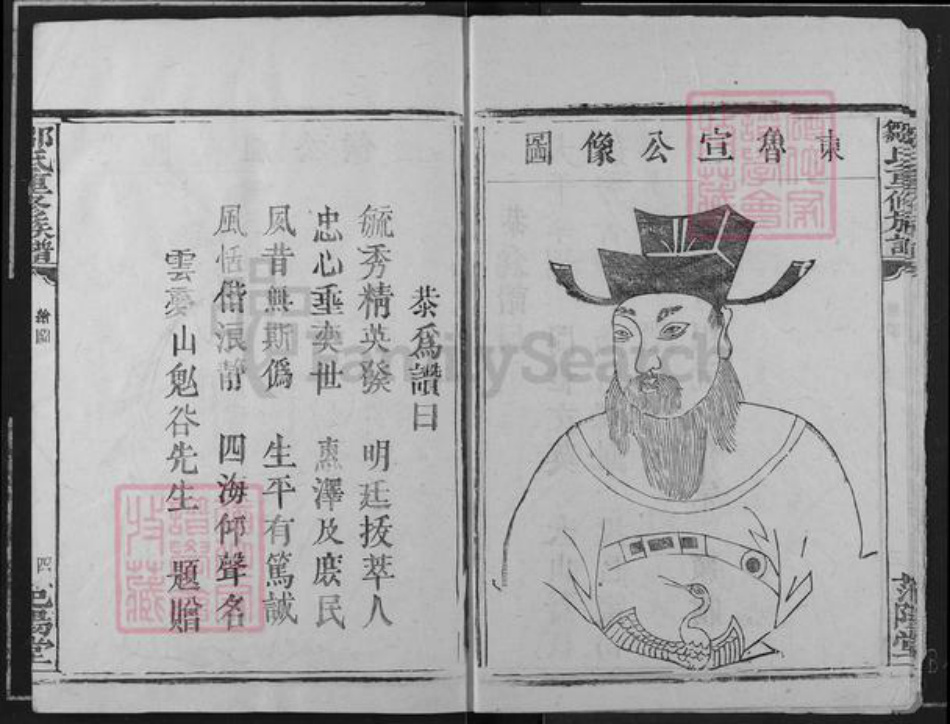 鄒氏重修族譜
東魯宣公像圖
恭爲讚曰
毓秀精英發 明廷拔萃人
忠心垂奕世 惠澤及庶民
夙昔無斯僞 生平有篤誠
風恬偕浪靜 四海仰聲名
雲夢山鬼谷先生 題贈
氏重修族譜
繪圖
四
FamilySearch